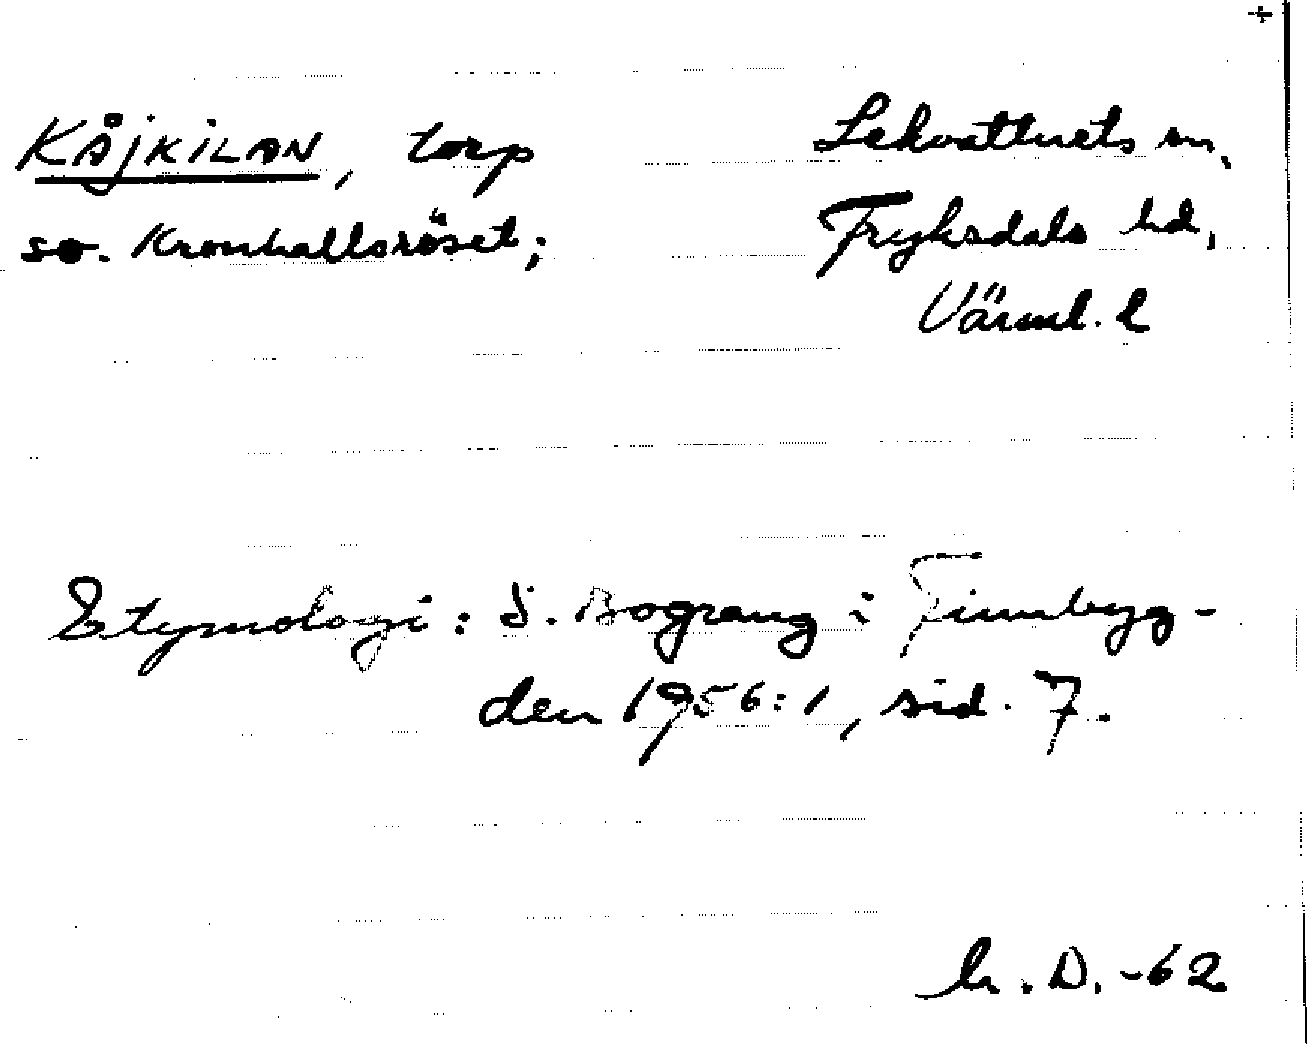 +
KÅJKILAN, torp
so. Kronhallsröset;
Lekvattnets sn,
Fryksdals hd,
Värml. l
Etymologi: S. Bograng i Finnbyg-
den 1956:1, sid. 7.
D. -62